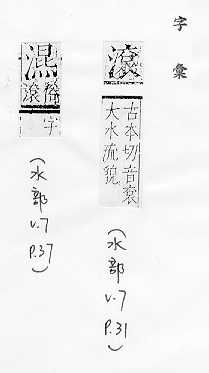 字彙
滾
古本切音袞
大水流貌
(水部
V.7
P.31)
俗
滾字
(水部
V.7
P.37)